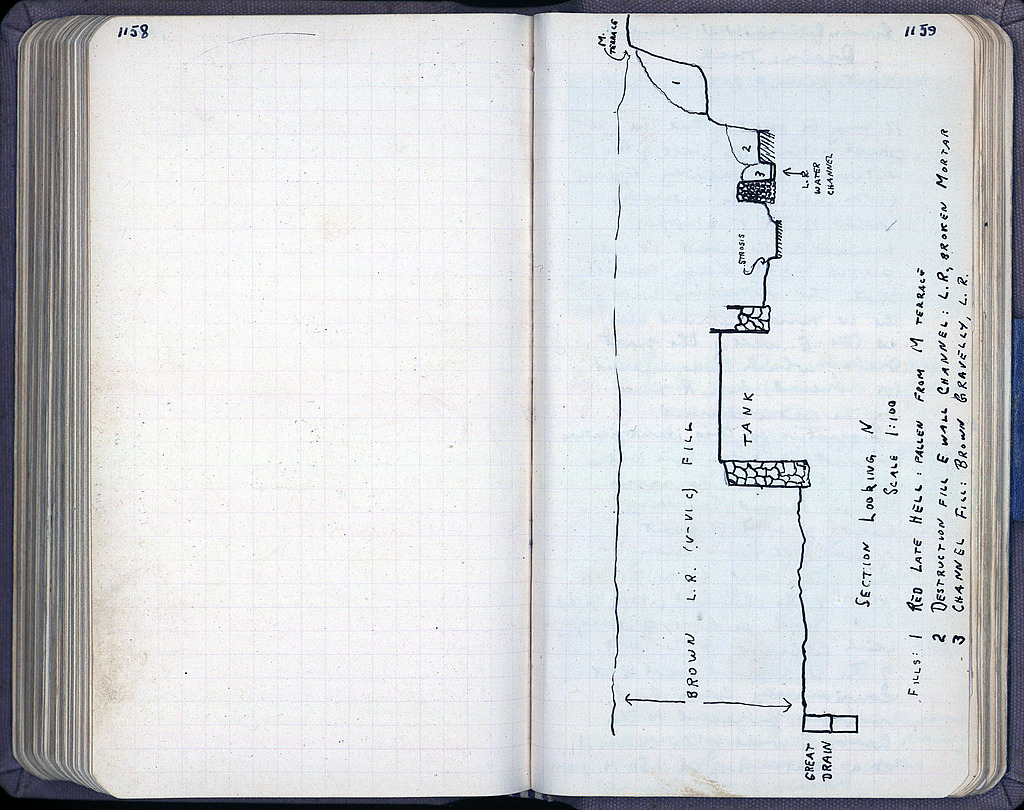 1158
1159
M.
TERRACE
1
2
3
L.R.
WATER
CHANNEL
STROSIS
TANK
BROWN L.R. (V-VI C) FILL
GREAT
DRAIN
SECTION LOOKING N
SCALE 1:100
FILLS: 1 RED LATE HELL: FALLEN FROM M TERRACE
2 DESTRUCTION FILL E WALL CHANNEL: L.R, BROKEN MORTAR
3 CHANNEL FILL: BROWN GRAVELLY, L.R.